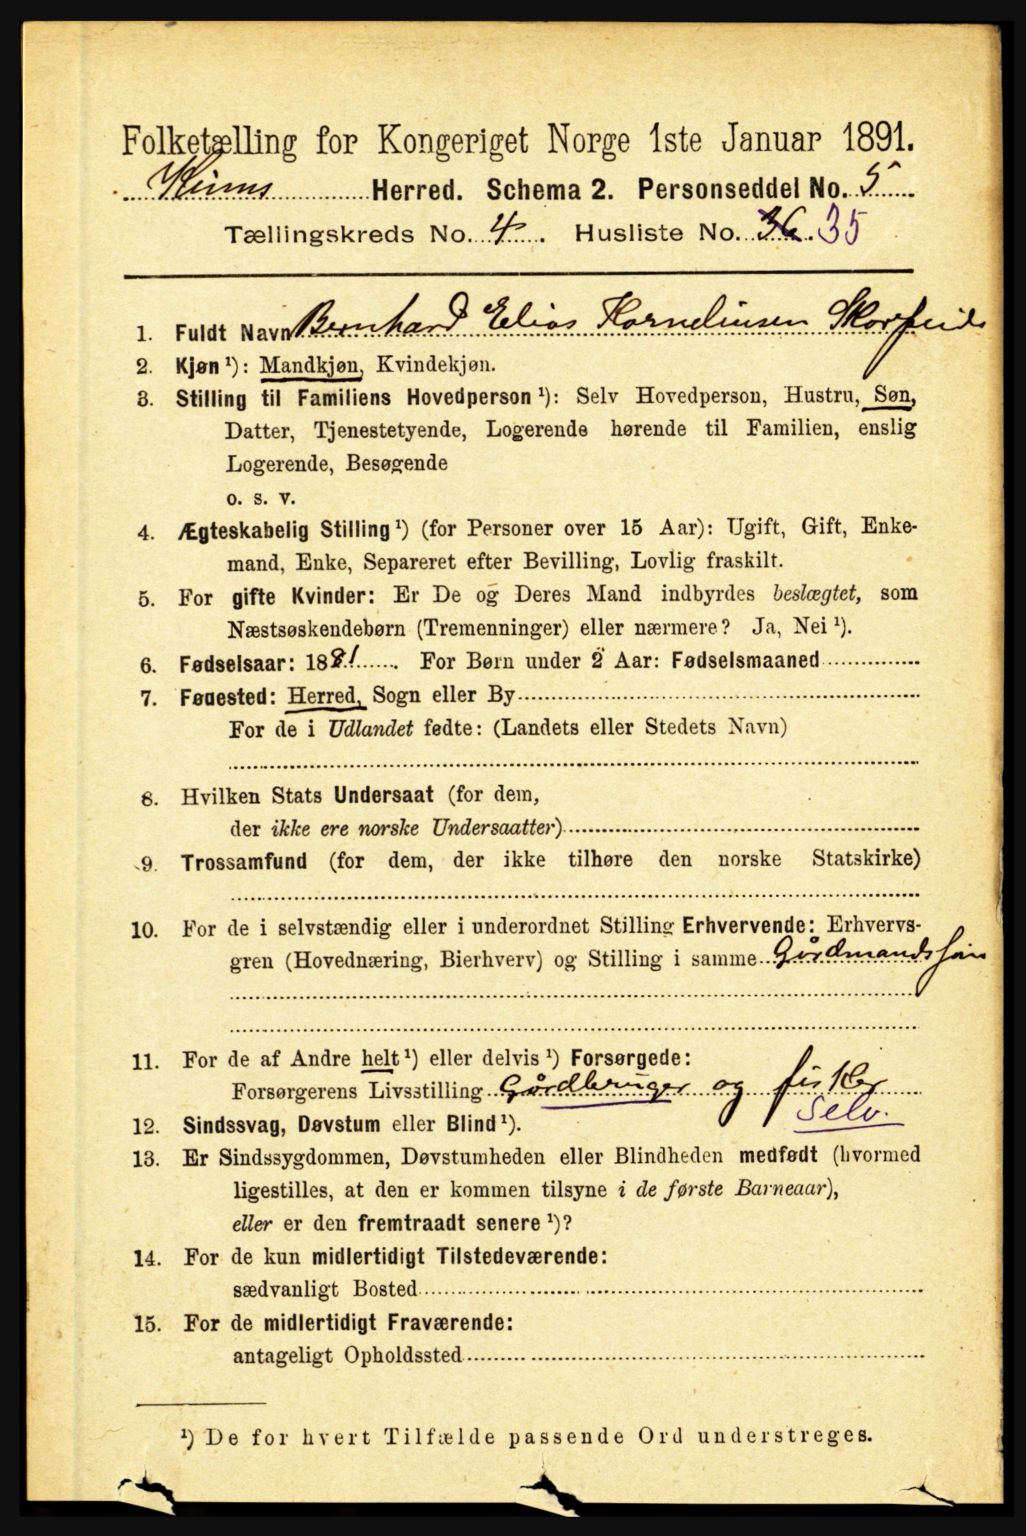 Folketælling for Kongeriget Norge 1ste Januar 1891.
Kinns Herred. Schema 2. Personseddel No. 5
Tællingskreds No. 4. Husliste No. 36. 35
1. Fuldt Navn Bernhard Elias Korneliusen Skorpeide
2. Kjøn ¹): Mandkjøn, Kvindekjøn.
3. Stilling til Familiens Hovedperson ¹): Selv Hovedperson, Hustru, Søn,
Datter, Tjenestetyende, Logerende hørende til Familien, enslig
Logerende, Besøgende
o. s. v.
4. Ægteskabelig Stilling ¹) (for Personer over 15 Aar): Ugift, Gift, Enke-
mand, Enke, Separeret efter Bevilling, Lovlig fraskilt.
5. For gifte Kvinder: Er De og Deres Mand indbyrdes beslægtet, som
Næstsøskendebørn (Tremenninger) eller nærmere? Ja, Nei ¹).
6. Fødselsaar: 1881. For Børn under 2 Aar: Fødselsmaaned
7. Føuested: Herred, Sogn eller By
For de i Udlandet fødte: (Landets eller Stedets Navn)
8. Hvilken Stats Undersaat (for dem,
der ikke ere norske Undersaatter)
9. Trossamfund (for dem, der ikke tilhøre den norske Statskirke)
10. For de i selvstændig eller i underordnet Stilling Erhvervende: Erhvervs-
gren (Hovednæring, Bierhverv) og Stilling i samme Gårdmands søn
11. For de af Andre helt ¹) eller delvis ¹) Forsørgede:
Forsørgerens Livsstilling Gårdbruger og fisker
Selv.
12. Sindssvag, Døvstum eller Blind ¹).
13. Er Sindssygdommen, Døvstumheden eller Blindheden medfødt (hvormed
ligestilles, at den er kommen tilsyne i de første Barneaar),
eller er den fremtraadt senere ¹)?
14. For de kun midlertidigt Tilstedeværende:
sædvanligt Bosted
15. For de midlertidigt Fraværende:
antageligt Opholdssted
¹) De for hvert Tilfælde passende Ord understreges.